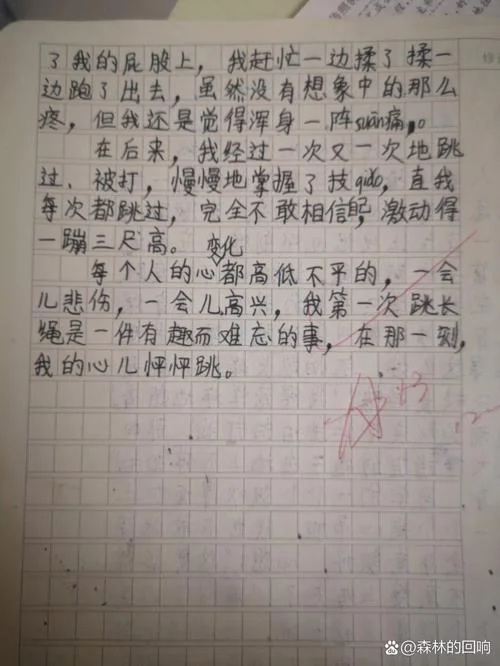 了我的屁股上，我赶忙一边揉了揉一
边跑了出去，虽然没有想象中的那么
疼，但我还是觉得浑身一阵suān痛。
在后来，我经过一次又一次地跳
过、被打，慢慢地掌握了技qiǎo，直我
每次都跳过，完全不敢相信，激动得
一蹦三尺高。
变化
每个人的心都高低不平的，一会
儿悲伤，一会儿高兴，我第一次跳长
绳是一件有趣而难忘的事，在那一刻，
我的心儿怦怦跳。
森林的回响